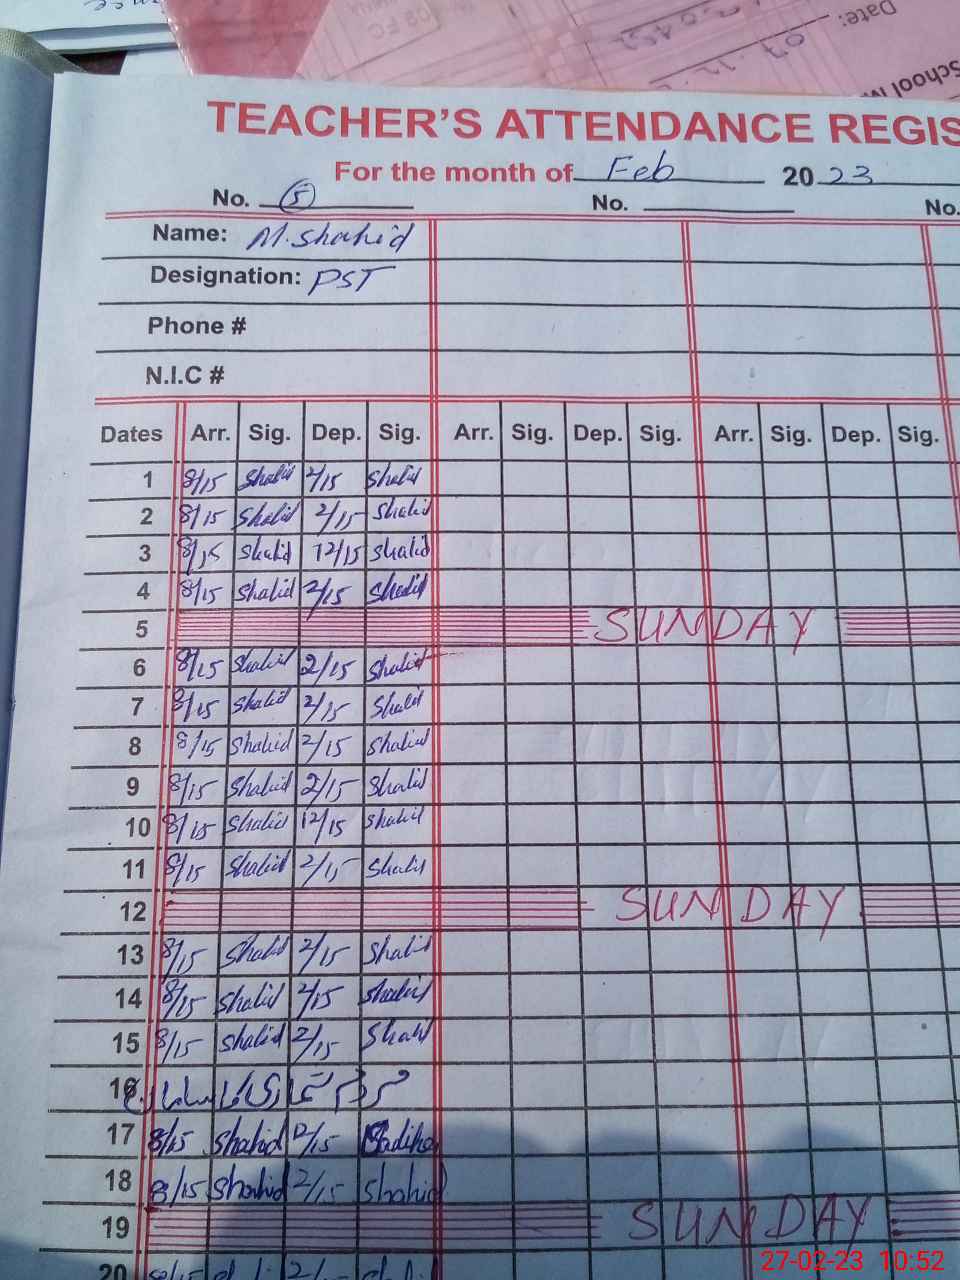 TEACHER'S ATTENDANCE REGIS
For the month of Feb 2023
No. 5 No. No.
Name: M.Shahid
Designation: PST
Phone #
N.I.C #
Dates Arr. Sig. Dep. Sig. Arr. Sig. Dep. Sig. Arr. Sig. Dep. Sig.
1 8/15 Shahid 2/15 Shahid
2 8/15 Shahid 2/15 Shahid
3 8/15 Shahid 12/15 Shahid
4 8/15 Shahid 2/15 Shahid
5 SUNDAY
6 8/15 Shahid 2/15 Shahid
7 8/15 Shahid 2/15 Shahid
8 8/15 Shahid 2/15 Shahid
9 8/15 Shahid 2/15 Shahid
10 8/15 Shahid 12/15 Shahid
11 8/15 Shahid 2/15 Shahid
12 SUNDAY
13 8/15 Shahid 2/15 Shahid
14 8/15 Shahid 2/15 Shahid
15 8/15 Shahid 2/15 Shahid
16
17 8/15 Shahid 12/15
18 8/15 Shahid 2/15 Shahid
19 SUNDAY
20 8/15 2/15
27-02-23 10:52
Date:
School M